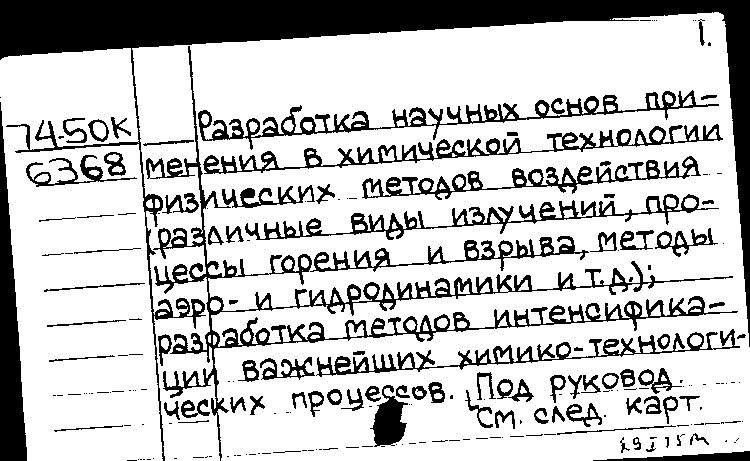 1.
74-50К Разработка научных основ при-
6368 менения в химической технологии
физических методов воздействия
(различные виды излучений, про-
цессы горения и взрыва, методы
аэро- и гидродинамики и т.д.);
разработка методов интенсифика-
ции важнейших химико-технологи-
ческих процессов. [Под руковод.
См. след. карт.